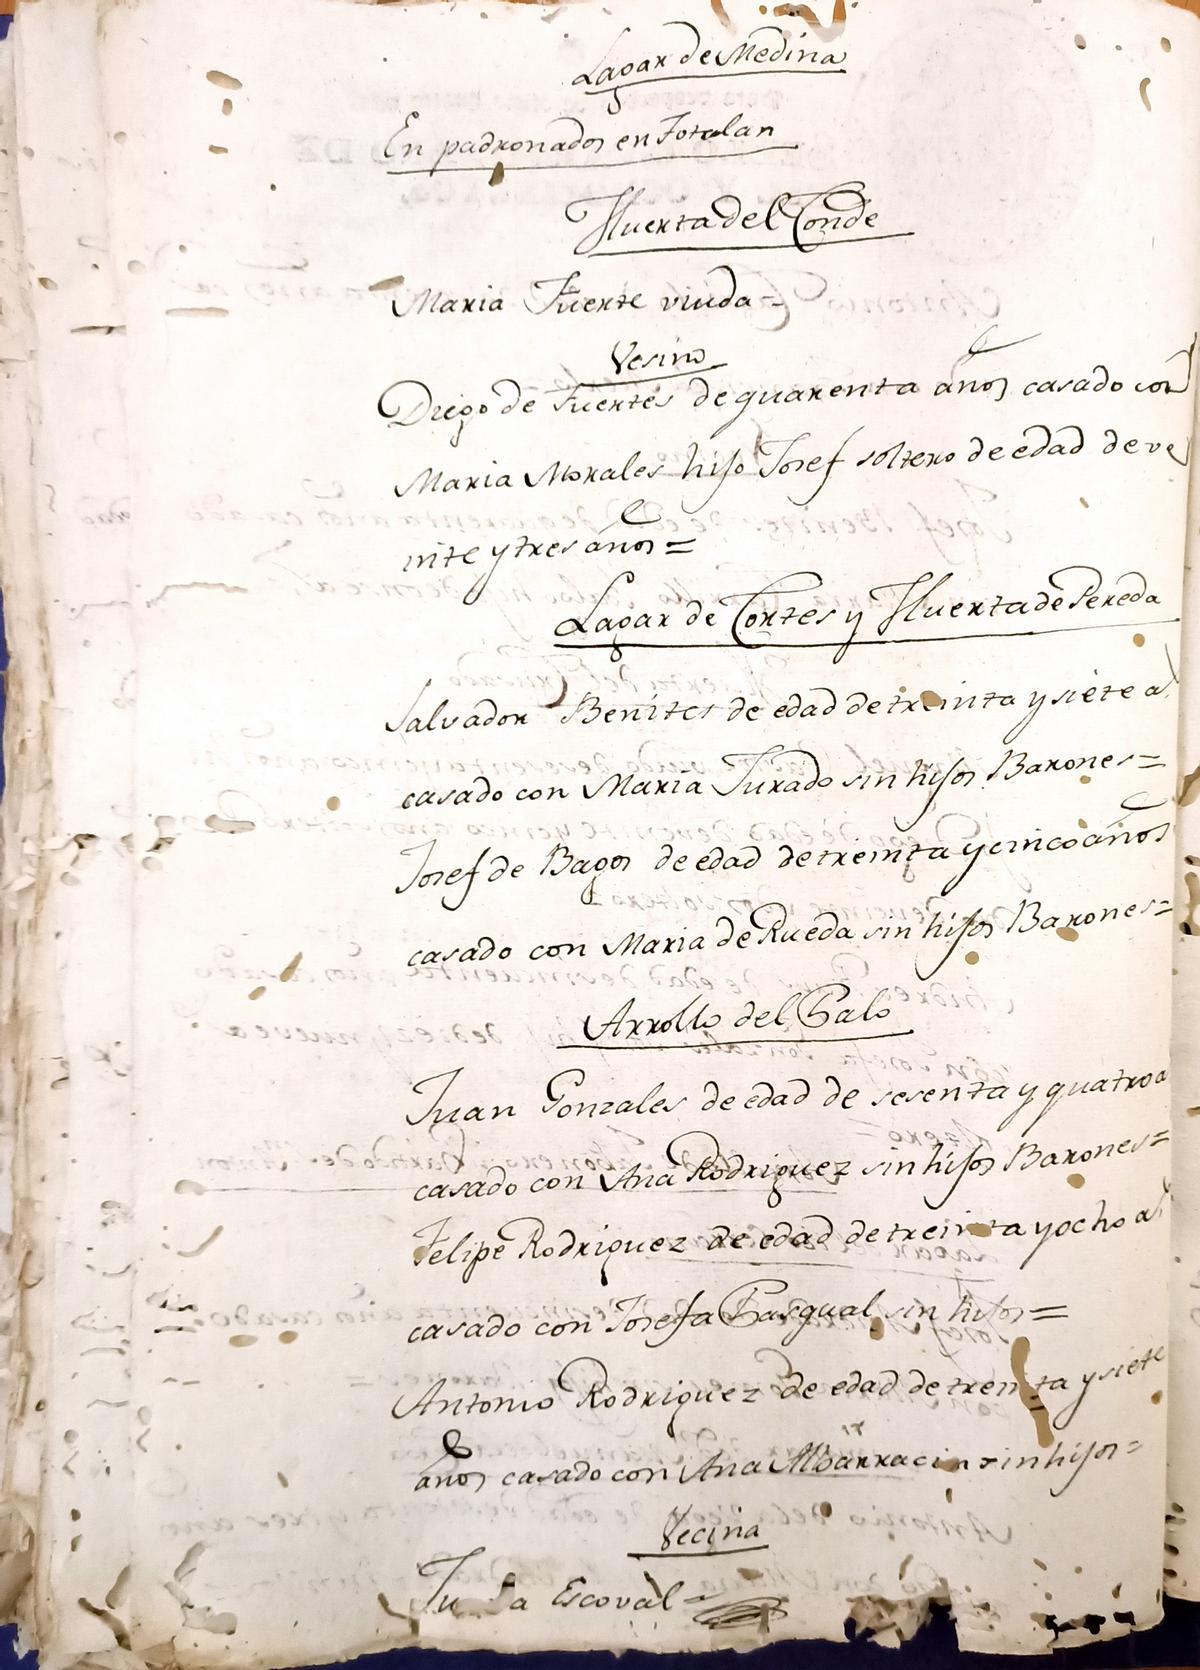 Lagar de Medina
En padronados en Totalan
Huerta del Conde
Maria Fuerte viuda =
Vesino
Diego de Fuertes de quarenta años casado con
Maria Morales hijo Josef soltero de edad de ve
inte y tres años =
Lagar de Cortes y Huerta de Pereda
Salvador Benites de edad de treinta y siete a
casado con Maria Jurado sin hijos Barones =
Josef de Bagos de edad de treinta y cinco años
casado con Maria de Rueda sin hijos Barones =
Arrollo del Palo
Juan Gonzales de edad de sesenta y quatro a
casado con Ana Rodriguez sin hijos Barones =
Felipe Rodriguez de edad de treinta y ocho a
casado con Josefa Pasqual sin hijos =
Antonio Rodriguez de edad de treinta y siete
años casado con Ana Albarracin sin hijos =
Vecina
Escoval =